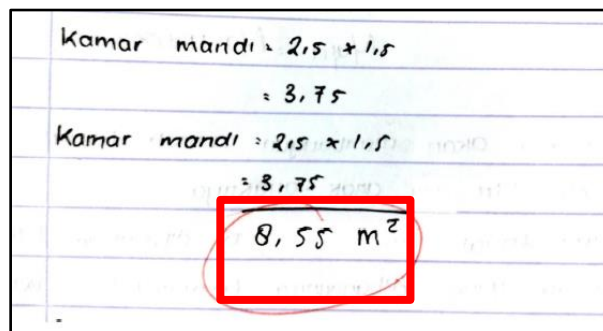 Kamar mandi = 2,5 × 1,5
= 3,75
Kamar mandi = 2,5 × 1,5
= 3,75
8,55 m²